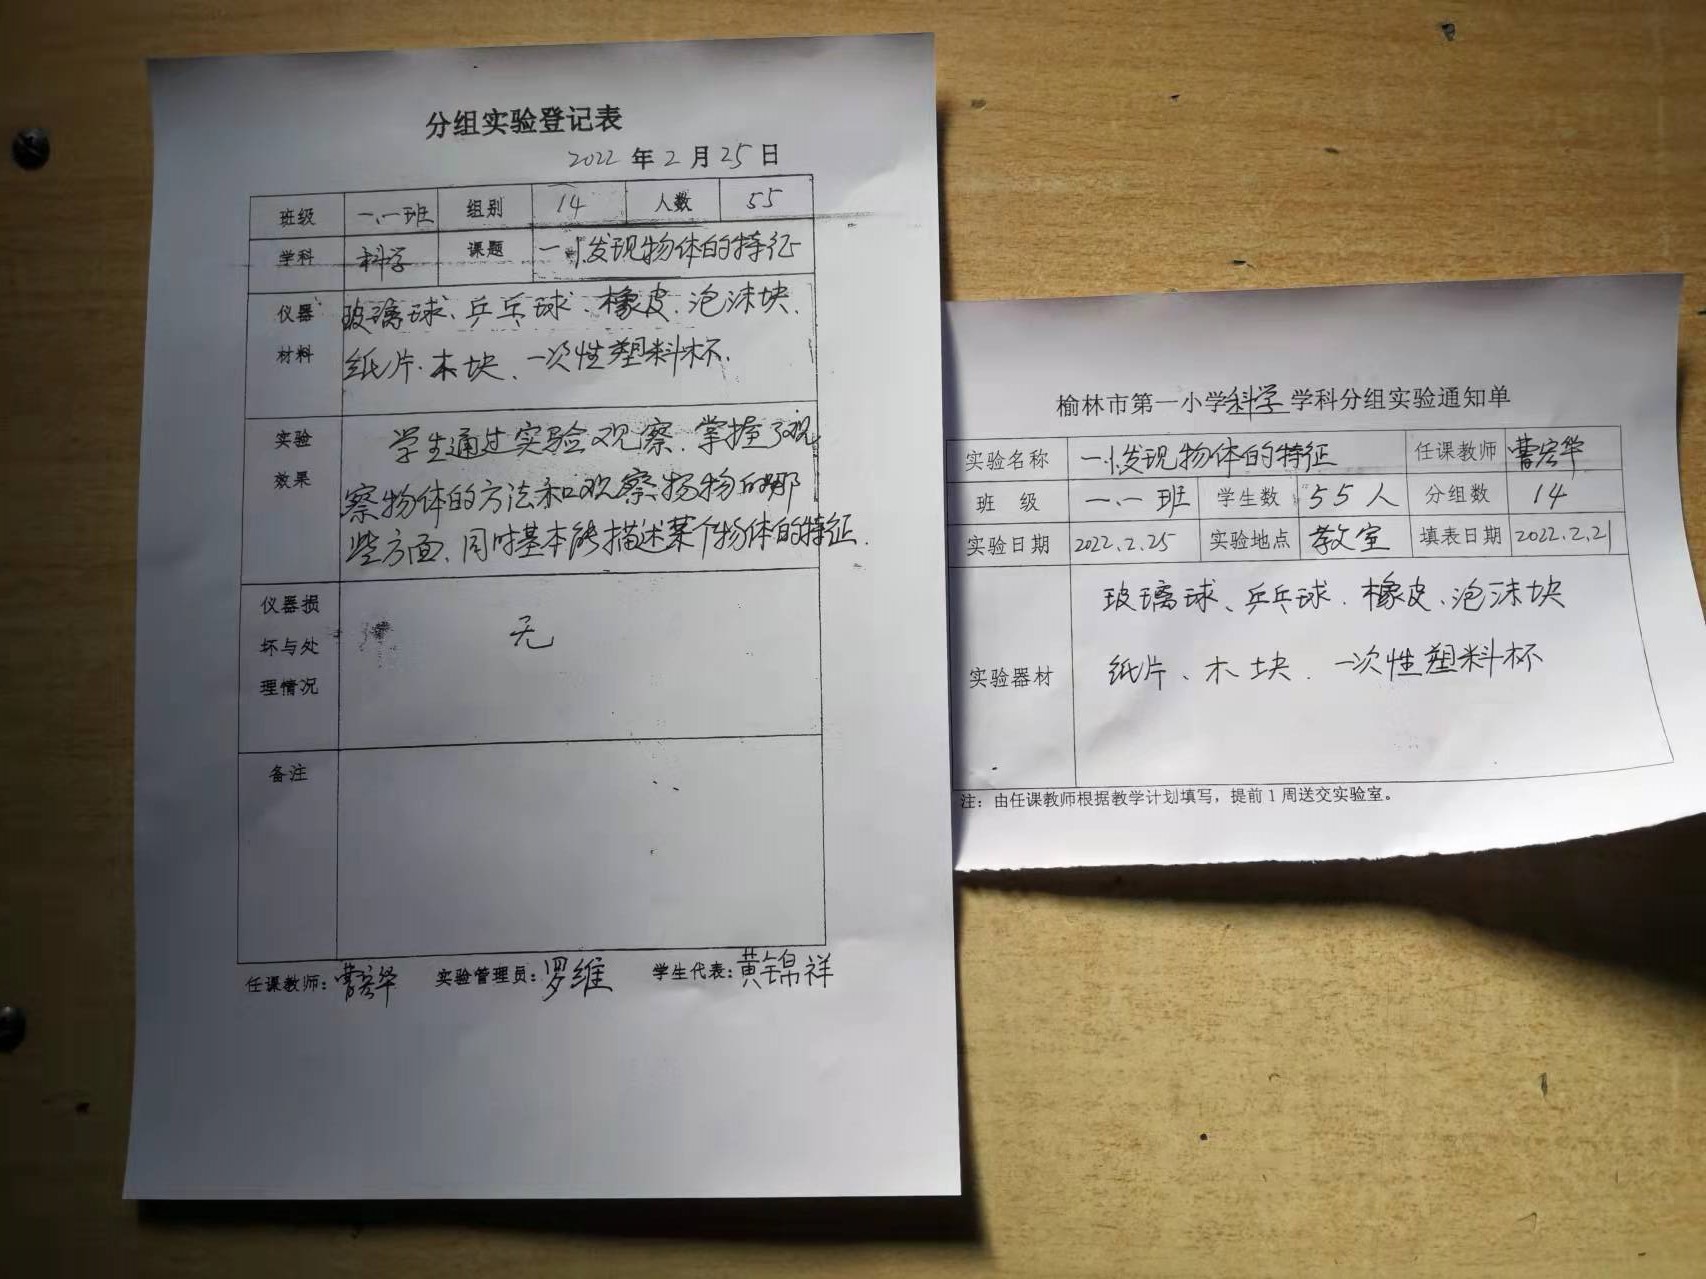 分组实验登记表
2022 年 2 月 25 日
班级 一.一班 组别 14 人数 55
学科 科学 课题 一.1.发现物体的特征
仪器材料 玻璃球、乒乓球、橡皮、泡沫块、
纸片、木块、一次性塑料杯.
实验效果 学生通过实验观察、掌握了观
察物体的方法和观察物的哪
些方面、同时基本能描述某个物体的特征.
仪器损坏与处理情况 无
备注
任课教师: 曹宏华 实验管理员: 罗维 学生代表: 黄锦祥
榆林市第一小学科学学科分组实验通知单
实验名称 一.1.发现物体的特征 任课教师 曹宏华
班 级 一.一班 学生数 55人 分组数 14
实验日期 2022.2.25 实验地点 教室 填表日期 2022.2.21
实验器材 玻璃球、乒乓球、橡皮、泡沫块
纸片、木块、一次性塑料杯
注：由任课教师根据教学计划填写，提前1周送交实验室。